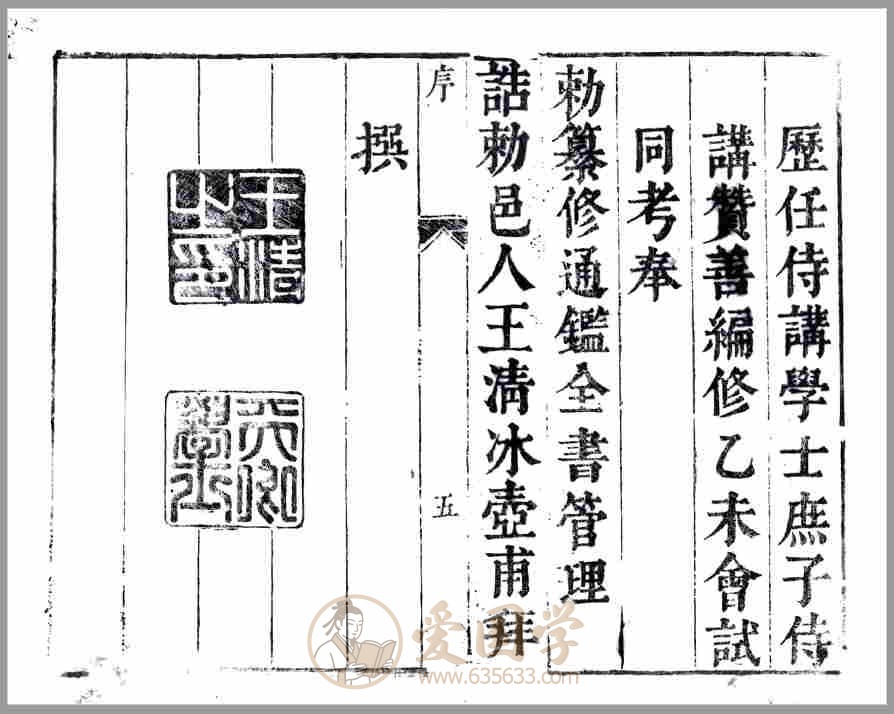 歷任侍講學士庶子侍
講贊善編修乙未會試
同考奉
勅纂修通鑑全書管理
誥勅邑人王清冰壺甫拜
序
五
撰
王清之印
天卿學士
爱国学
www.635633.com